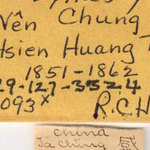 Vên Chung
Hsien Huang T
1851-1862
29-127-3324
093x
R.C.H
China
Ta Chung